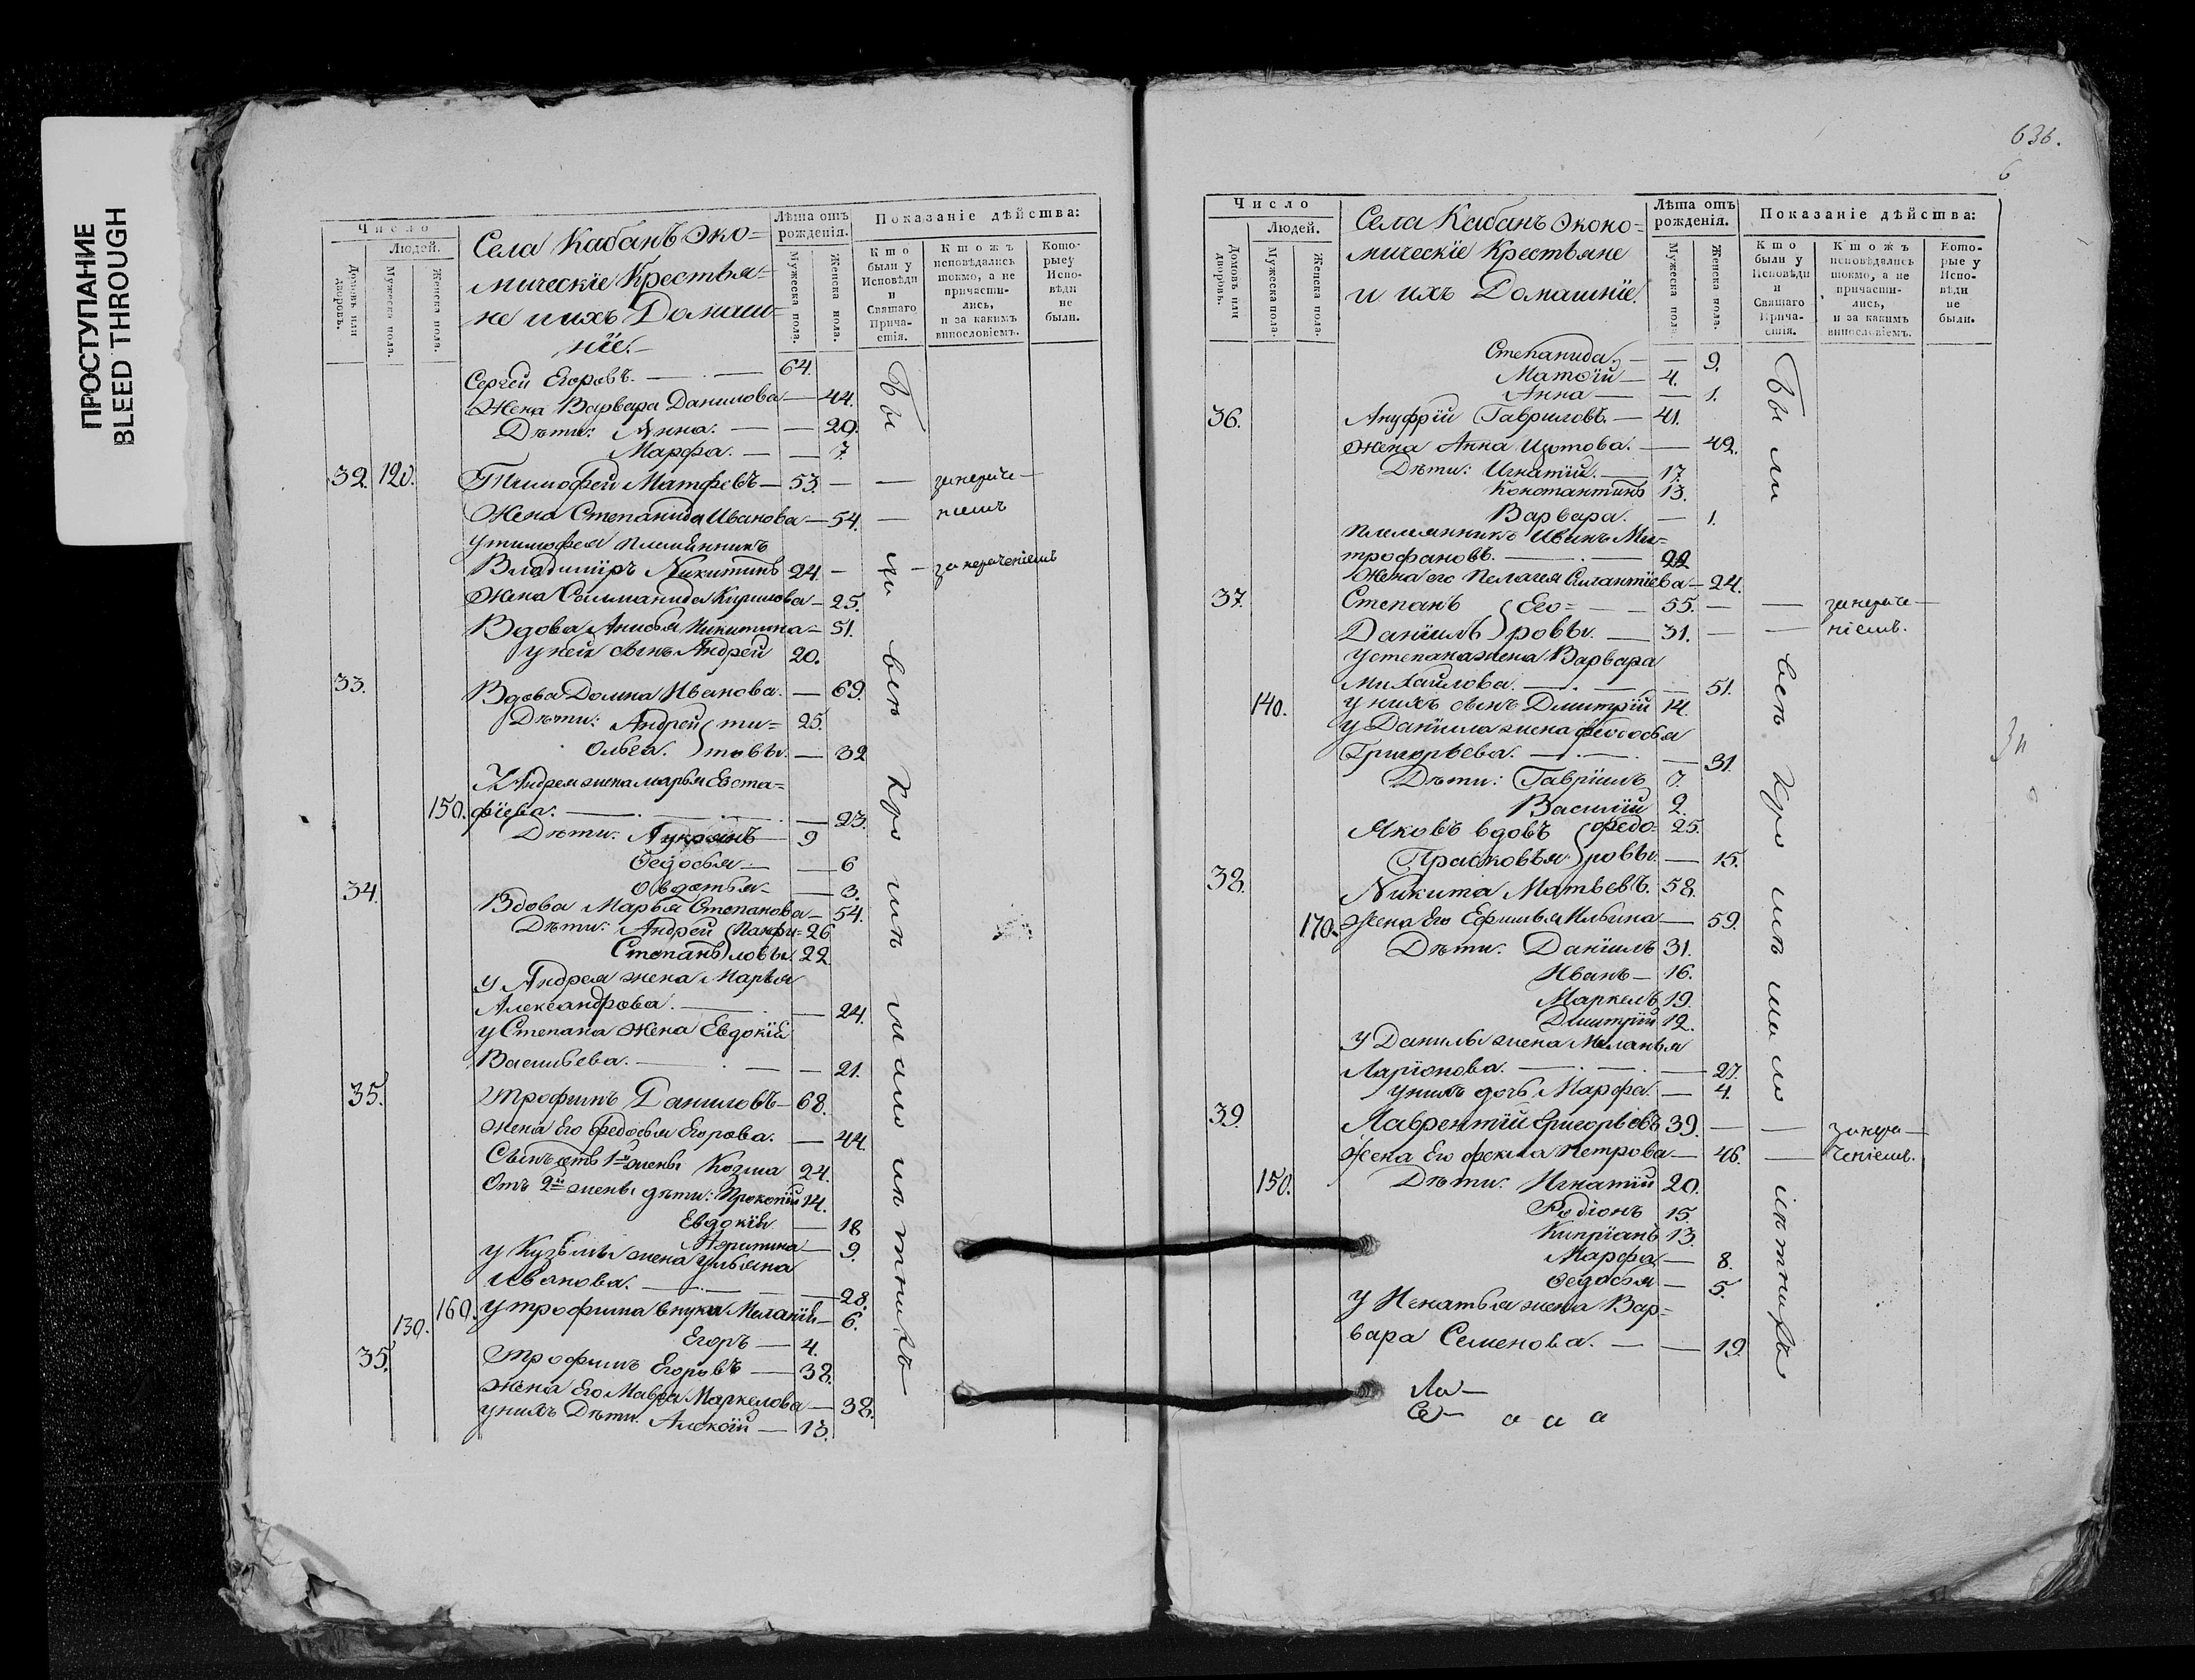 ПРОСТУПАНИЕ
BLEED THROUGH
Число
Людей.
Домовъ или дворовъ.
Мужеска пола.
Женска пола.
Села Кабанъ Эко=
мическїе Крестья=
не и ихъ Домаш=
нїе.
Лѣта отъ рожденія.
Мужеска пола.
Женска пола.
Показаніе дѣйства:
Кто были у Исповѣди и Святаго Прича-стія.
Ктожъ исповѣдались токмо, а не причасти-лись, и за какимъ винословіемъ.
Кото-рые у Испо-вѣди не были.
Сергей Егоровъ. — 64.
Жена Варвара Данилова — 44.
Дѣти: Анна: — 20.
Марфа. — 7.
32. 120. Тимофей Матфевъ — 53. — — занераче—
Жена Степанида Иванова — 54. — нiемъ
у тимофея племенникъ
Владимiръ Никитинъ 24. — — за нераченiемъ
Жена Соломанида Кирилова — 25.
Вдова Анисья Никитина — 51.
у ней сынъ Андрей 20.
33. Вдова Домна Иванова. — 69.
Дѣти: Андрей ти= 25.
Ольга. товы. — 32
У Андрея жена марья Евста=
150. фiева. — 23.
Дѣти: Лукоянъ — 9
Федосья — 6
Овдотья — 3.
34. Вдова Марья Степанова — 54.
Дѣти: Андрей Панфи= 26
Степанъ ловы 22.
у Андрея жена Марья
Александрова. — 24.
у Степана жена Евдокiя
Васильева. — 21.
35. Трофимъ Даниловъ — 68.
жена Его Федосья Егорова. — 44.
Сынъ отъ 1й жены Козма 24.
Отъ 2й жены дѣти: Прокопiй 14.
Евдокiя — 18
— 9.
у Кузьмы жена Ульяна
Иванова. — 28.
160. у трофима внуки Меланiя — 6.
130. Егоръ — 4.
35. Трофимъ Егоровъ — 38.
жена Его Мавра Маркелова — 38.
у нихъ Дѣти. Алексiй — 13.
Бы ли всѣ кро мѣ мало лѣтнихъ
636.
6
Число
Людей.
Домовъ или дворовъ.
Мужеска пола.
Женска пола.
Села Кабанъ Эконо=
мическiе Крестьяне
и ихъ Домашнiе.
Лѣта отъ рожденія.
Мужеска пола
Женска пола.
Показаніе дѣйства:
Кто были у Исповѣди и Святаго Прича-стія.
Ктожъ исповѣдались токмо, а не причасти-лись, и за какимъ винословіемъ.
Кото-рые у Испо-вѣди не были.
Степанида. — — 9.
Матфiй — 4.
Анна — — 1.
36. Ануфрiй Гавриловъ. — 41.
жена Анна Изотова. — 42.
Дѣти: Игнатiй. — 17.
Константинъ 13.
Варвара. — 1.
племянникъ Иванъ Ми=
трофановъ. — 22
Жена его Пелагея Силантiева — 24.
37. Степанъ Его= — 55. — — занераче—
Данiилъ ровы. — 31. — — нiемъ.
у степана жена Варвара
Михайлова. — 51.
140. у нихъ сынъ Димитрiй 14.
у Данiила жена феодосья
Григорьева. — 31.
Дѣти: Гаврiилъ 7.
Василiй 2.
Яковъ вдовъ федо= 25.
Прасковья ровы. — 15.
38. Никита Матвѣевъ. 58.
170. Жена Его Ефимья Ильина — 59.
Дѣти. Данiилъ 31.
Иванъ — 16.
Маркелъ 19.
Дмитрiй 12.
у Данилы жена Меланья
Ларiонова. — 27.
у нихъ дочь Марфа. — 4.
39. Лаврентiй Григорьевъ 39. — — занера—
Жена Его фекла Петрова — 46. — ченiемъ.
150. Дѣти. Игнатiй 20.
Родiонъ 15.
Кипрiанъ 13.
Марфа — 8.
Федосья — 5.
У Игнатья жена Вар=
вара Семенова. — 19.
Бы ли всѣ кро мѣ мало лѣтнихъ